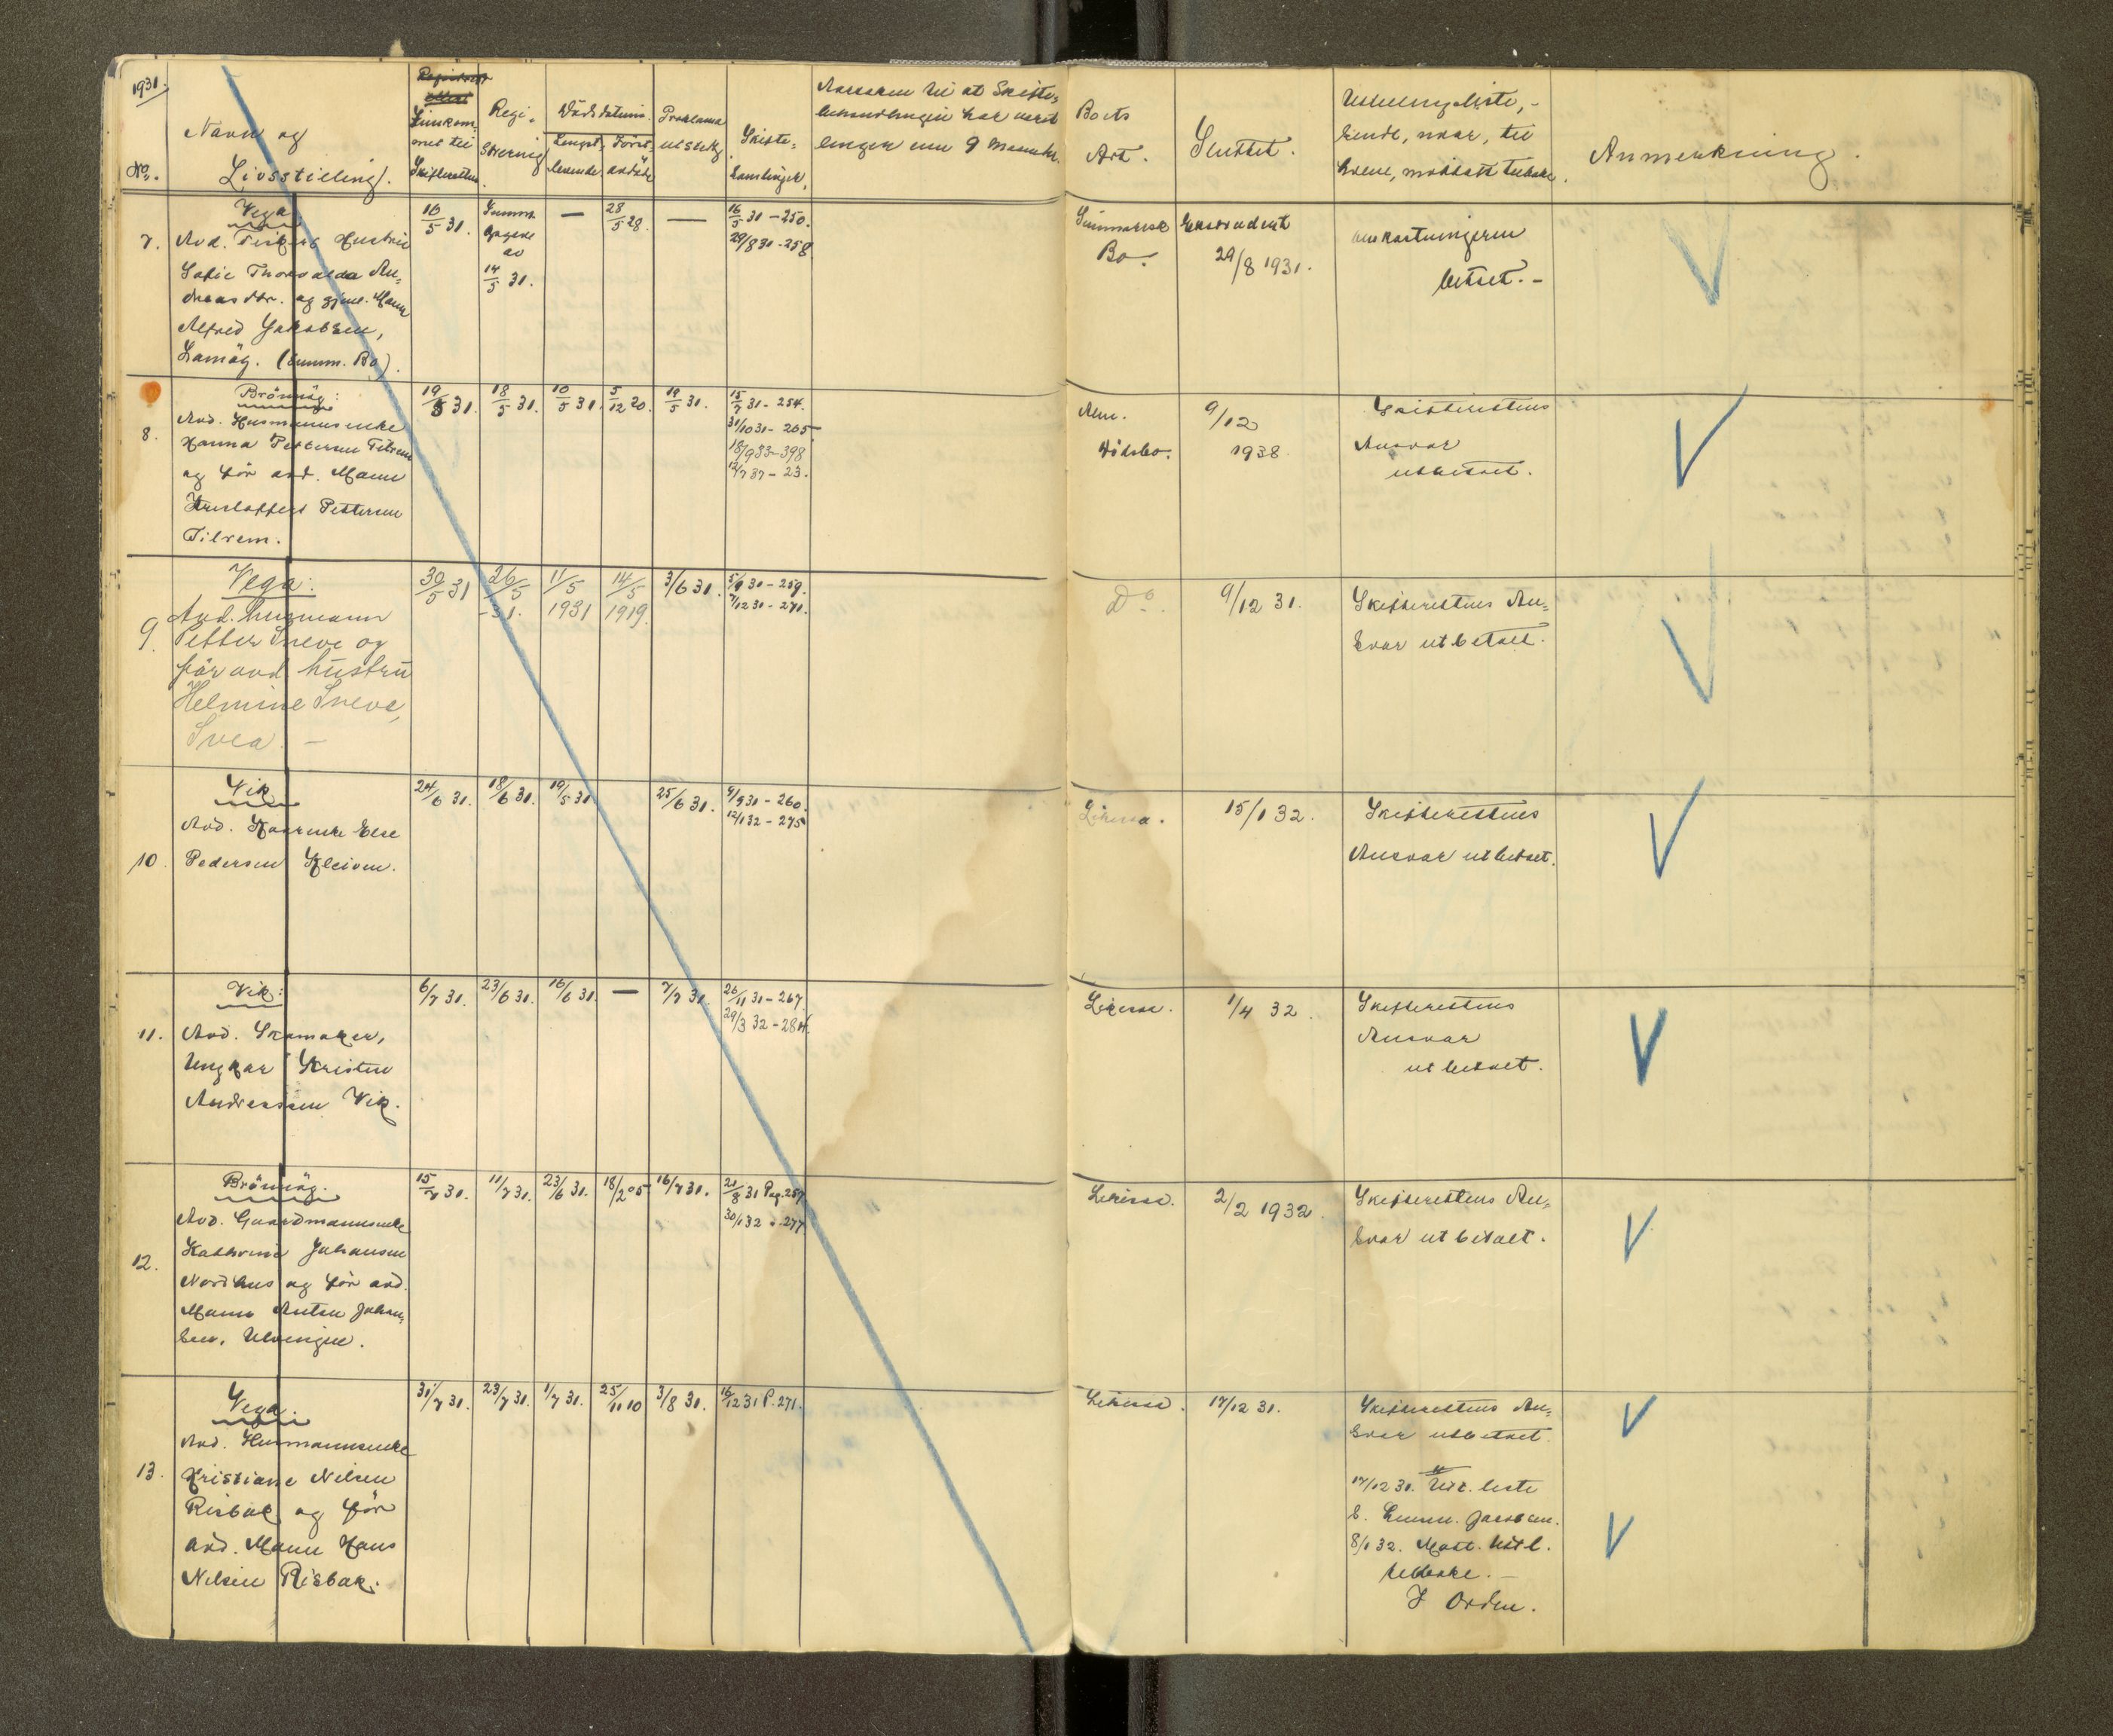 1931.
No.
Navn og
Livsstilling.
Innkom-
met til
Skifteretten
Regi-
strering
Dødsdatums.
Lengst-
levende
Først-
avdöde
Proklama
utstedt
Skifte-
samlinger.
Aarsaken til at Skifte-
behandlingen har varet
lenger enn 9 Maaneder.
Boets
Art.
Sluttet.
Utlodningsliste, -
sendt, naar, til
hvem, mottatt tilbake.
Anmerkning.
7.
Vega
Avd. Fiskers Hustru
Sofie Thorvalda An-
dreasdtr. og gjenl. Mann
Alfred Jakobsen,
(Summ. Bo).
16/5 31.
Summ.
Opgave
av
14/5 31.
—
28/5 28.
—
16/5 31 - 250.
29/8 31 - 258.
Summarisk
Bo.
Ekstradert
29/8 1931.
Omkostningerne
betalt. -
8.
Brönnöy:
Avd. Husmannsenke
Hanna Pettersen Tilrem
og för avd. Mann
Kristoffer Pettersen
Tilrem.
19/5 31.
18/5 31.
10/5 31.
5/12 20.
19/5 31.
15/7 31 - 254.
31/10 31 - 265
18/9 33 - 398
12/7 37 - 23.
Alm.
Dödsbo.
9/12
1938.
Skifterettens
Ansvar
utbetalt.
9.
Vega:
Avd. husmann
Petter Sneve og
för avd. hustru
Helmine Sneve,
Svea. -
30/5 31
26/5
-31.
11/5
1931
14/5
1919.
3/6 31.
5/9 31 - 259.
7/12 31 - 270.
Do.
9/12 31.
Skifterettens An-
svar utbetalt.
10.
Vik
Avd. Else
Pedersen Kleiven.
24/6 31.
18/6 31.
19/5 31
25/6 31.
9/9 31 - 260.
12/1 32 - 275
15/1 32.
Skifterettens
Ansvar utbetalt.
11.
Vik:
Avd. Skomaker,
Ungkar Kristen
Andreassen Vik.
6/7 31.
23/6 31.
16/6 31.
—
7/7 31.
26/11 31 - 267.
29/3 32 - 284.
1/4 32.
Skifterettens
Ansvar
utbetalt.
12.
Brönnöy.
Avd. Gaardmannsenke
Kathrine Johansen
Nordhus og för avd.
Mann Anton Johan-
sen,
15/7 31.
11/7 31.
23/6 31.
18/2 05
16/7 31.
21/8 31 Pag. 257
30/1 32 " 277
2/2 1932.
Skifterettens An-
svar utbetalt.
13.
Vega.
Avd. Husmannsenke
Kristiane Nilsen
Risbak og för
avd. Mann Hans
Nilsen Risbak.
31/7 31.
23/7 31.
1/7 31.
25/11 10
3/8 31.
16/12 31 P. 271.
17/12 31.
Skifterettens An-
svar utbetalt.
17/12 31. Utl. liste
s. Jacobsen.
8/1 32. Mott. Utl.
tilbake. -
I Orden.